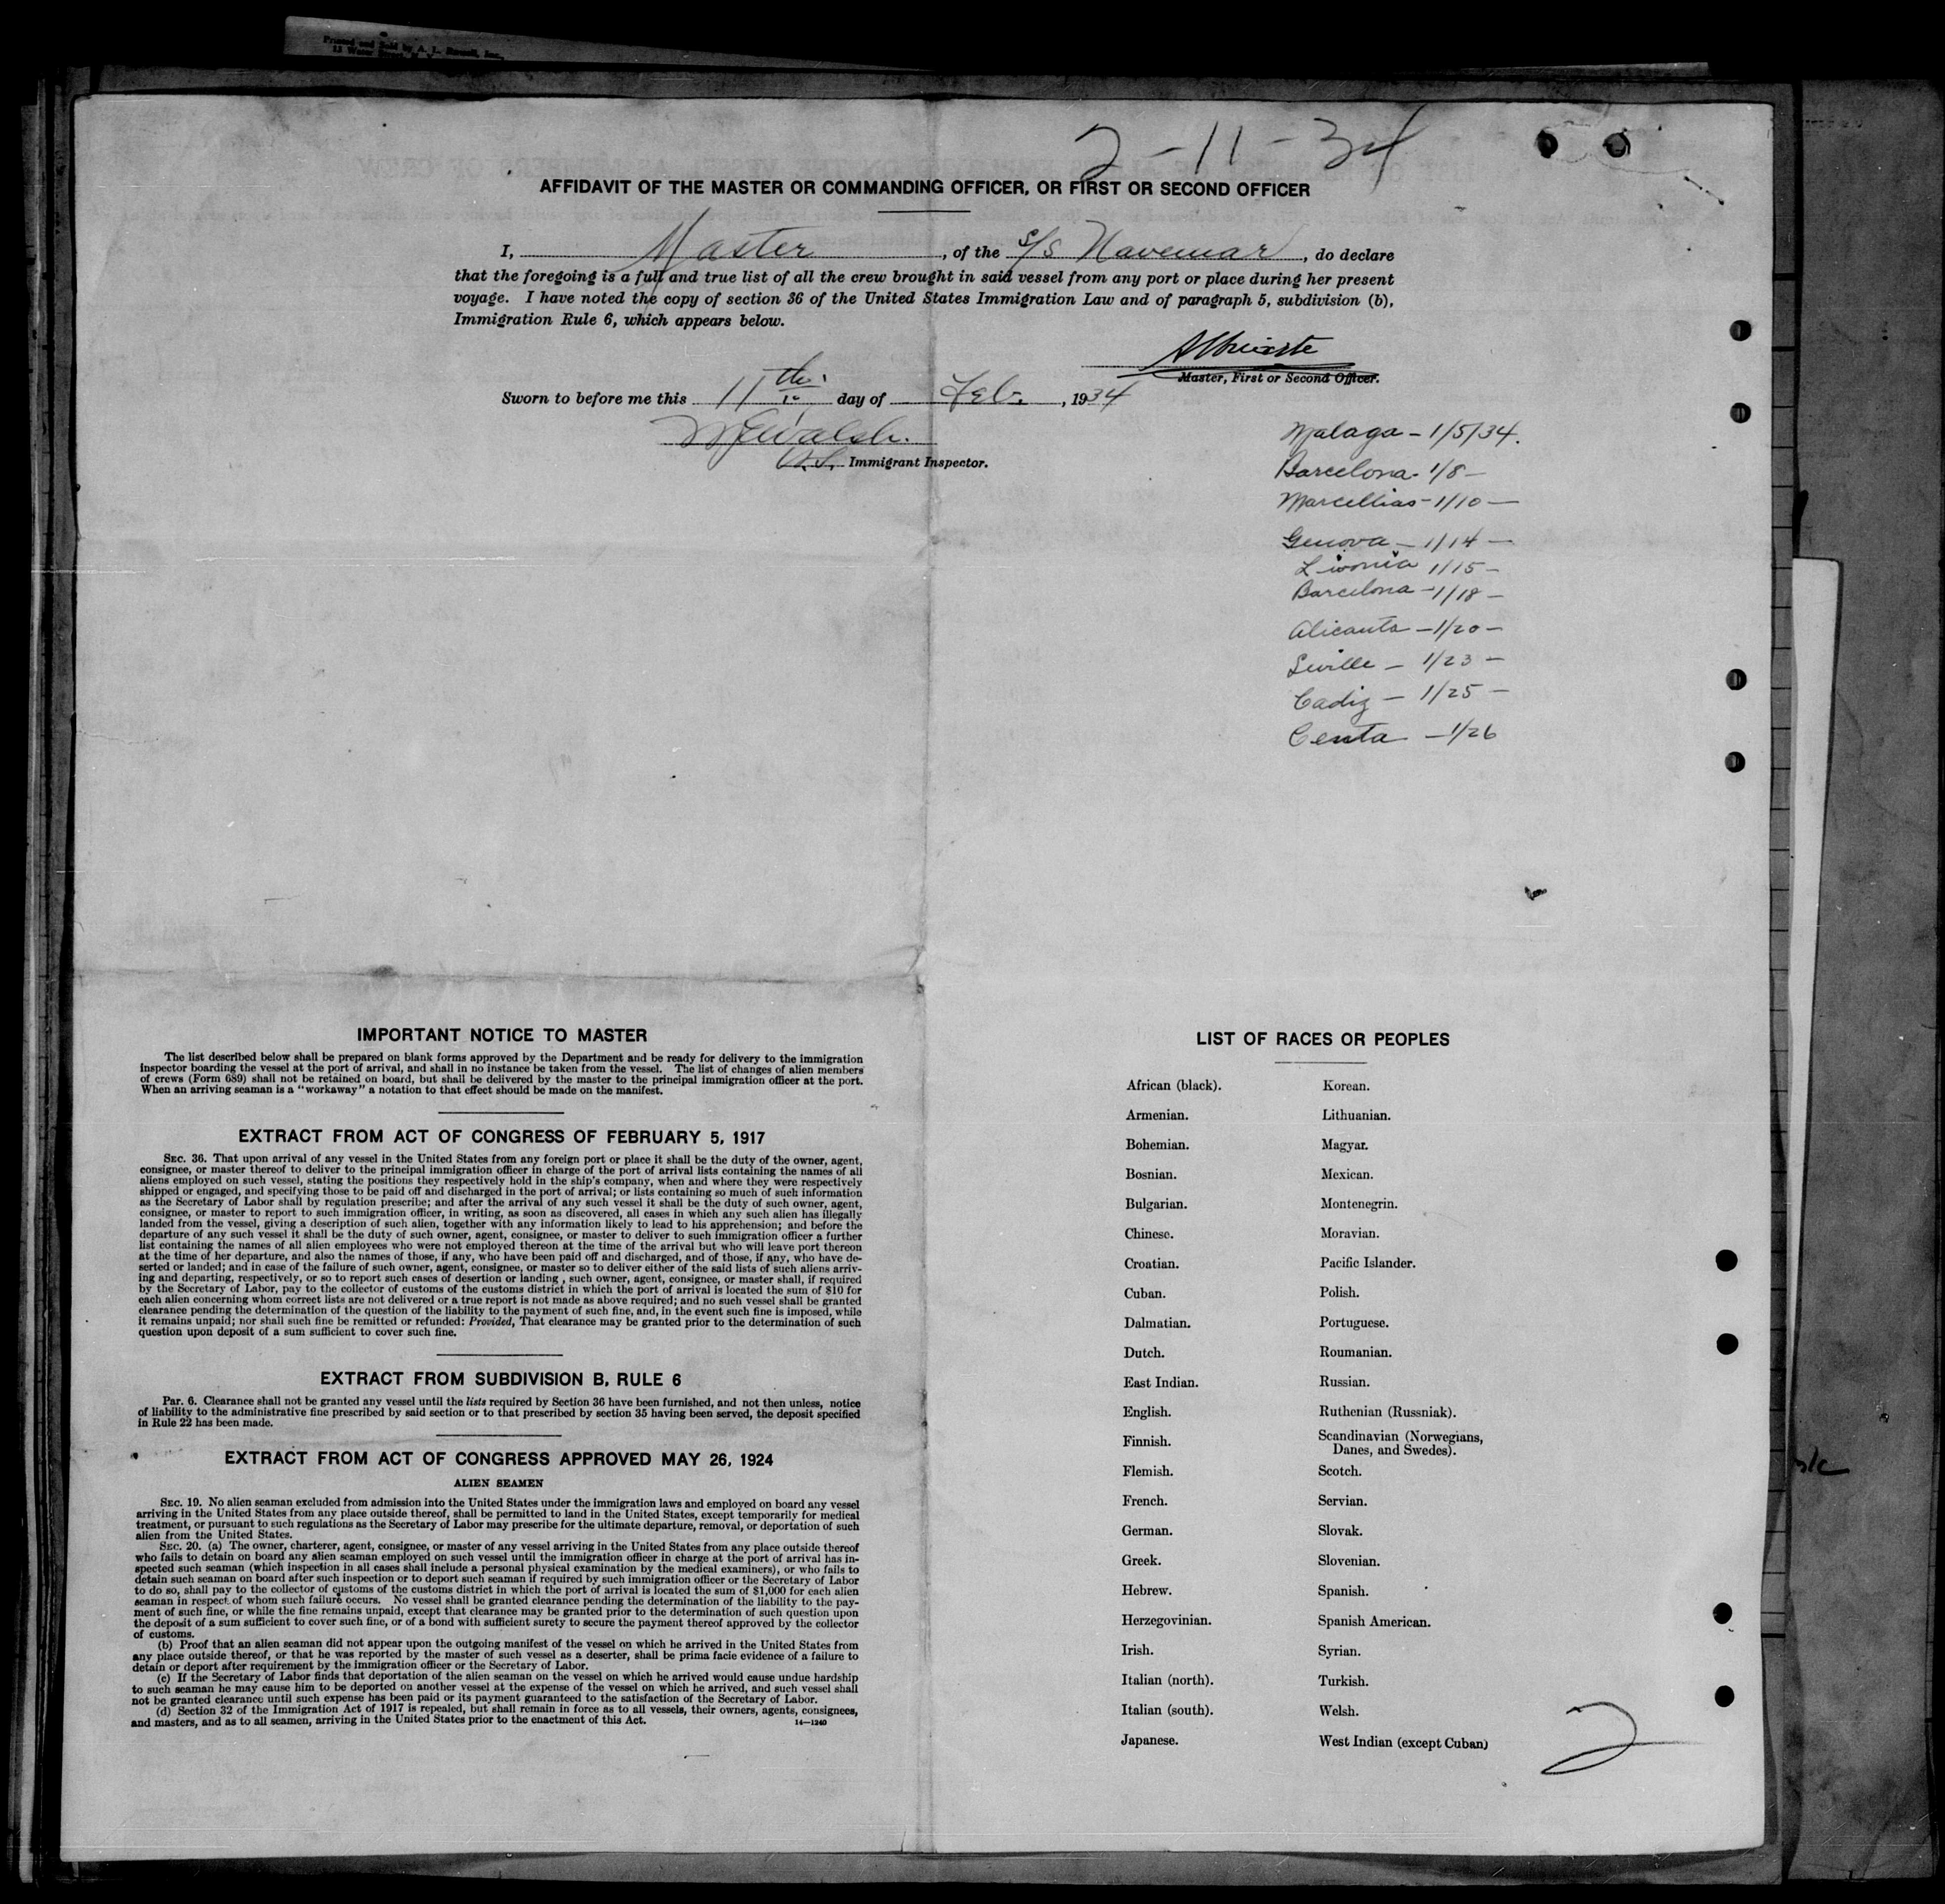 Printed and Sold by A. L. Russell, Inc.
13 Water
2-11-34
AFFIDAVIT OF THE MASTER OR COMMANDING OFFICER, OR FIRST OR SECOND OFFICER
I, Master, of the S/S Navemar, do declare
that the foregoing is a full and true list of all the crew brought in said vessel from any port or place during her present
voyage. I have noted the copy of section 36 of the United States Immigration Law and of paragraph 5, subdivision (b),
Immigration Rule 6, which appears below.
Master, First or Second Officer.
Sworn to before me this 11th day of Feb., 1934
Walsh.
Immigrant Inspector.
Malaga - 1/5/34.
Barcelona - 1/8 -
Marcellias - 1/10 -
Genova - 1/14 -
Livonia 1/15 -
Barcelona - 1/18 -
Alicanta - 1/20 -
Seville - 1/23 -
Cadiz - 1/25 -
Centa - 1/26
IMPORTANT NOTICE TO MASTER
The list described below shall be prepared on blank forms approved by the Department and be ready for delivery to the immigration
inspector boarding the vessel at the port of arrival, and shall in no instance be taken from the vessel. The list of changes of alien members
of crews (Form 689) shall not be retained on board, but shall be delivered by the master to the principal immigration officer at the port.
When an arriving seaman is a "workaway" a notation to that effect should be made on the manifest.
EXTRACT FROM ACT OF CONGRESS OF FEBRUARY 5, 1917
SEC. 36. That upon arrival of any vessel in the United States from any foreign port or place it shall be the duty of the owner, agent,
consignee, or master thereof to deliver to the principal immigration officer in charge of the port of arrival lists containing the names of all
aliens employed on such vessel, stating the positions they respectively hold in the ship's company, when and where they were respectively
shipped or engaged, and specifying those to be paid off and discharged in the port of arrival; or lists containing so much of such information
as the Secretary of Labor shall by regulation prescribe; and after the arrival of any such vessel it shall be the duty of such owner, agent,
consignee, or master to report to such immigration officer, in writing, as soon as discovered, all cases in which any such alien has illegally
landed from the vessel, giving a description of such alien, together with any information likely to lead to his apprehension; and before the
departure of any such vessel it shall be the duty of such owner, agent, consignee, or master to deliver to such immigration officer a further
list containing the names of all alien employees who were not employed thereon at the time of the arrival but who will leave port thereon
at the time of her departure, and also the names of those, if any, who have been paid off and discharged, and of those, if any, who have de-
serted or landed; and in case of the failure of such owner, agent, consignee, or master so to deliver either of the said lists of such aliens arriv-
ing and departing, respectively, or so to report such cases of desertion or landing , such owner, agent, consignee, or master shall, if required
by the Secretary of Labor, pay to the collector of customs of the customs district in which the port of arrival is located the sum of $10 for
each alien concerning whom correct lists are not delivered or a true report is not made as above required; and no such vessel shall be granted
clearance pending the determination of the question of the liability to the payment of such fine, and, in the event such fine is imposed, while
it remains unpaid; nor shall such fine be remitted or refunded: Provided, That clearance may be granted prior to the determination of such
question upon deposit of a sum sufficient to cover such fine.
EXTRACT FROM SUBDIVISION B, RULE 6
Par. 6. Clearance shall not be granted any vessel until the lists required by Section 36 have been furnished, and not then unless, notice
of liability to the administrative fine prescribed by said section or to that prescribed by section 35 having been served, the deposit specified
in Rule 22 has been made.
EXTRACT FROM ACT OF CONGRESS APPROVED MAY 26, 1924
ALIEN SEAMEN
SEC. 19. No alien seaman excluded from admission into the United States under the immigration laws and employed on board any vessel
arriving in the United States from any place outside thereof, shall be permitted to land in the United States, except temporarily for medical
treatment, or pursuant to such regulations as the Secretary of Labor may prescribe for the ultimate departure, removal, or deportation of such
alien from the United States.
SEC. 20. (a) The owner, charterer, agent, consignee, or master of any vessel arriving in the United States from any place outside thereof
who fails to detain on board any alien seaman employed on such vessel until the immigration officer in charge at the port of arrival has in-
spected such seaman (which inspection in all cases shall include a personal physical examination by the medical examiners), or who fails to
detain such seaman on board after such inspection or to deport such seaman if required by such immigration officer or the Secretary of Labor
to do so, shall pay to the collector of customs of the customs district in which the port of arrival is located the sum of $1,000 for each alien
seaman in respect of whom such failure occurs. No vessel shall be granted clearance pending the determination of the liability to the pay-
ment of such fine, or while the fine remains unpaid, except that clearance may be granted prior to the determination of such question upon
the deposit of a sum sufficient to cover such fine, or of a bond with sufficient surety to secure the payment thereof approved by the collector
of customs.
(b) Proof that an alien seaman did not appear upon the outgoing manifest of the vessel on which he arrived in the United States from
any place outside thereof, or that he was reported by the master of such vessel as a deserter, shall be prima facie evidence of a failure to
detain or deport after requirement by the immigration officer or the Secretary of Labor.
(c) If the Secretary of Labor finds that deportation of the alien seaman on the vessel on which he arrived would cause undue hardship
to such seaman he may cause him to be deported on another vessel at the expense of the vessel on which he arrived, and such vessel shall
not be granted clearance until such expense has been paid or its payment guaranteed to the satisfaction of the Secretary of Labor.
(d) Section 32 of the Immigration Act of 1917 is repealed, but shall remain in force as to all vessels, their owners, agents, consignees,
and masters, and as to all seamen, arriving in the United States prior to the enactment of this Act.
14—1240
LIST OF RACES OR PEOPLES
African (black).
Armenian.
Bohemian.
Bosnian.
Bulgarian.
Chinese.
Croatian.
Cuban.
Dalmatian.
Dutch.
East Indian.
English.
Finnish.
Flemish.
French.
German.
Greek.
Hebrew.
Herzegovinian.
Irish.
Italian (north).
Italian (south).
Japanese.
Korean.
Lithuanian.
Magyar.
Mexican.
Montenegrin.
Moravian.
Pacific Islander.
Polish.
Portuguese.
Roumanian.
Russian.
Ruthenian (Russniak).
Scandinavian (Norwegians,
Danes, and Swedes).
Scotch.
Servian.
Slovak.
Slovenian.
Spanish.
Spanish American.
Syrian.
Turkish.
Welsh.
West Indian (except Cuban)
2